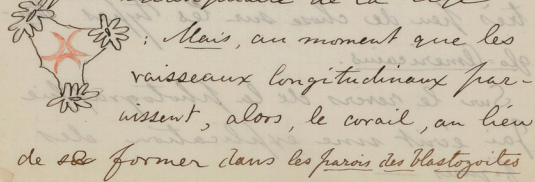 : Mais, au moment que les
vaisseaux longitudinaux par-
aissent, alors, le corail, au lieu
de se former dans les parois des blastozoites